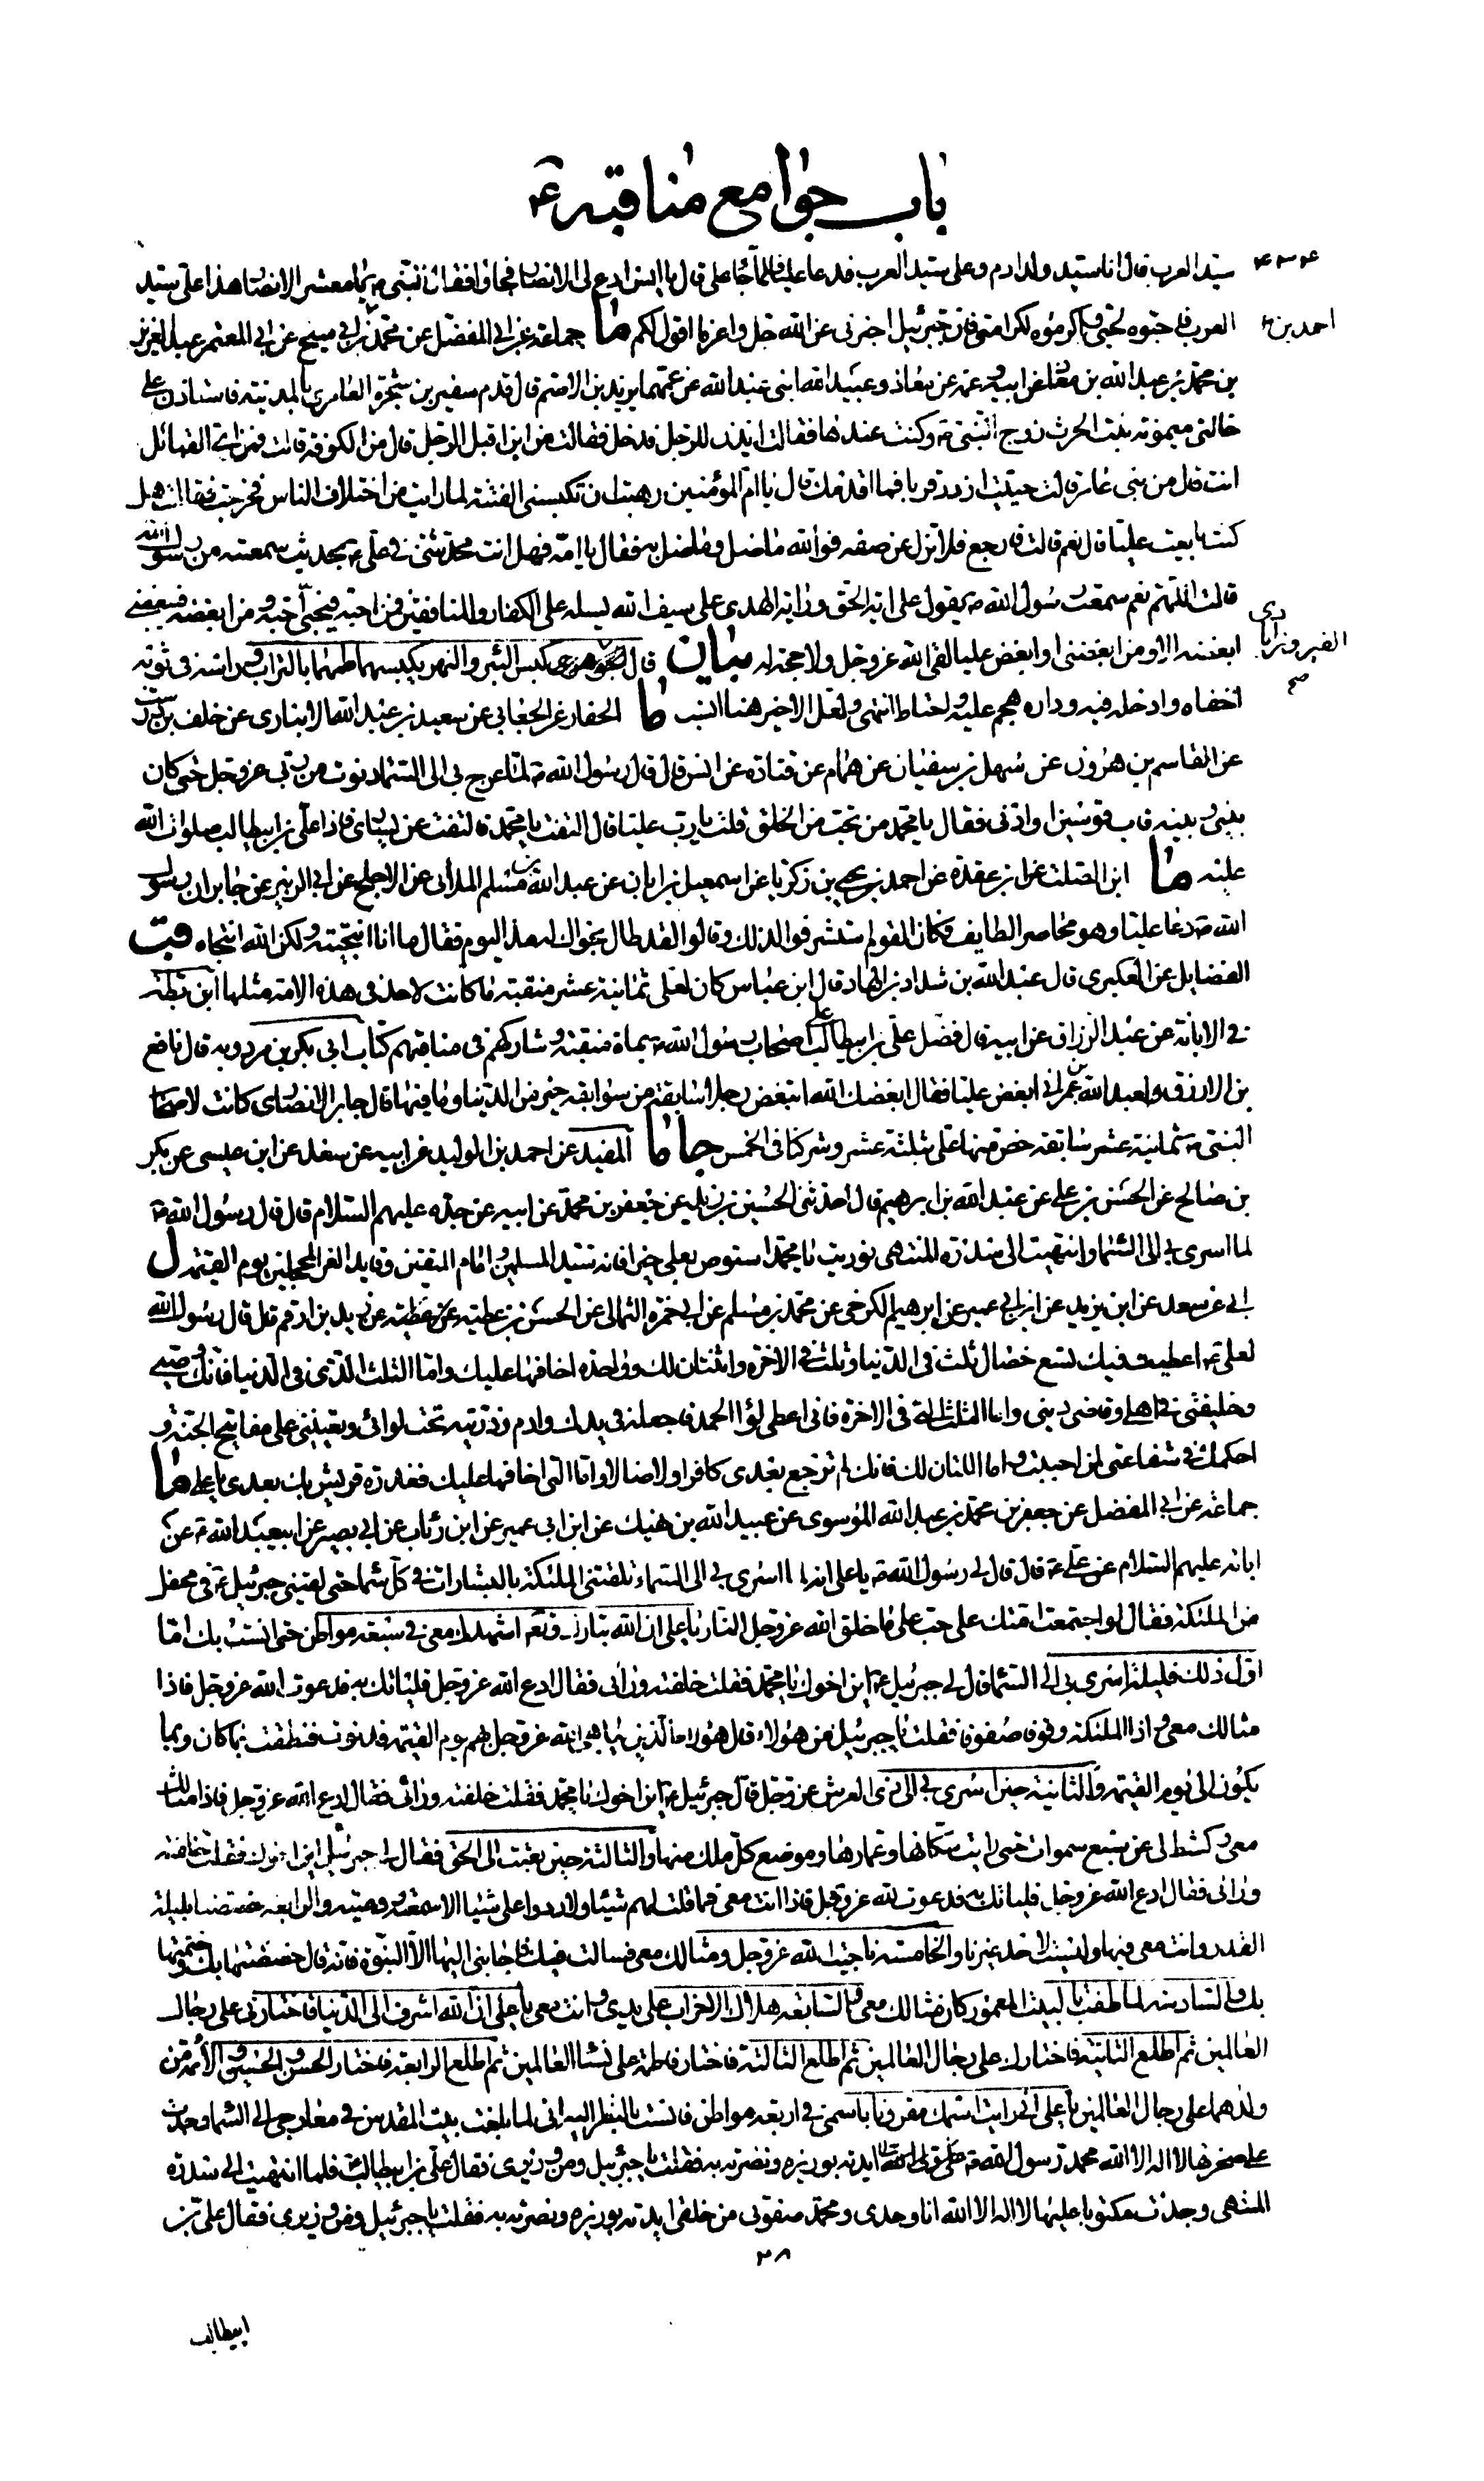 باب جوامع مناقبه ع
سيّد العرب قال انا سيد ولد ادم و على سيد العرب فدعا عليا فلما جاء على قال يا انس ادع لى الانصار فجاؤا فقال النبى ص يا معشر الانصار هذا على سيد
احمد بن
العرب فاحبوه لحبى و اكرموه لكرامتى فان جبرئيل اخبرنى عن الله جل و عز ما اقول لكم ما جماعة عن ابى المفضل عن محمد بن ابى مسيح عن ابى المعتمر عبد العزيز
بن محمد بن عبد الله بن معاذ عن ابيه و عمه عن معاذ و عبيد الله ابنى عبد الله عن عمهما يزيد بن الاصم قال قدم سفير بن شجرة العامرى بالمدينة فاستاذن على
خالتى ميمونة بنت الحرث زوج النبى ص و كنت عندها فقالت ايذن للرجل فدخل فقالت من اين اقبل الرجل قال من الكوفة قالت فمن اى القبائل
انت قال من بنى عامر قالت حييت ازدد قربا فما اقدمك قال يا ام المؤمنين رهبت ان تكبسنى الفتنة لما رايت من اختلاف الناس فخرجت فقالت هل
كنت بايعت عليا قال نعم قالت فارجع فلا تزل عن صفه فو الله ما ضل و ما ضل به فقال يا امه فهل انت محدثتى فى على ع بحديث سمعته من رسول الله
قالت اللهم نعم سمعت رسول الله ص يقول على اية الحق و راية الهدى على سيف الله يسله على الكفار و المنافقين فمن احبه فبحبى احبه و من ابغضه فببغضى
الفيروزابادى صح
ابغضه الا و من ابغضنى او ابغض عليا لقى الله عز و جل و لا حجة له بيان قال كبس البئر و النهر يكبسهما طمهما بالتراب و راسه فى ثوبه
اخفاه و ادخله فيه و داره هجم عليه و احتاط انتهى و لعل الاخير هنا انسب ما الحفار عن الجعابى عن سعيد بن عبد الله الانبارى عن خلف بن درست
عن القاسم بن هرون عن سهل بن سفيان عن همام عن قتادة عن انس قال قال رسول الله ص لما عرج بى الى السماء دنوت من ربى عز و جل حتى كان
بينى و بينه قاب قوسين او ادنى فقال يا محمد من تحب من الخلق قلت يا رب عليا قال التفت يا محمد فالتفت عن يسارى فاذا على بن ابيطالب صلوات الله
عليه ما ابن الصلت عن ابن عقدة عن احمد بن يحيى بن زكريا عن اسمعيل بن ابان عن عبد الله بن مسلم الملائى عن الاجلح عن ابى الزبير عن جابر ان رسول
الله ص دعا عليا و هو محاصر الطايف فكان القوم استشرفوا لذلك و قالوا لقد طال نجواك له هذا اليوم فقال ما انا انتجيته و لكن الله انتجاه قب
الفضايل عن العكبرى قال عبد الله بن شداد بن الهاد قال ابن عباس كان لعلى ثمانية عشر منقبة ما كانت لاحد فى هذه الامة مثلها ابن بطة
فى الابانة عن عبد الرزاق عن ابيه قال فضل على بن ابيطالب على اصحاب رسول الله ص بماة منقبة و شاركهم فى مناقبهم كتاب ابى بكر بن مردويه قال نافع
بن الازرق لعبد الله بن عمر انى ابغض عليا فقال ابغضك الله اتبغض رجلا سابقة من سوابقه خير من الدنيا و ما فيها قال جابر الانصارى كانت لاصحاب
النبى ص ثمانية عشر سابقة خص منها على بثلثة عشر و شركنا فى الخمس جا ما المفيد عن احمد بن الوليد عن ابيه عن سعد عن ابن عيسى عن بكر
بن صالح عن الحسن بن على عن عبد الله بن ابرهيم قال حدثنى الحسين بن زيد عن جعفر بن محمد عن ابيه عن جده عليهم السلام قال قال رسول الله ص
لما اسرى بى الى السماء و انتهيت الى سدرة المنتهى نوديت يا محمد استوص بعلى خيرا فانه سيد المسلمين و امام المتقين و قايد الغر المحجلين يوم القيمة ل
ابى عن سعد عن ابن يزيد عن ابن ابى عمير عن ابرهيم الكرخى عن محمد بن مسلم عن ابى حمزة الثمالى عن الحسن بن عطية عن عطية عن زيد بن ارقم قال قال رسول الله
لعلى ع اعطيت فيك تسع خصال ثلث فى الدنيا و ثلث فى الاخرة و اثنتان لك و واحدة اخافها عليك و اما الثلث التى فى الدنيا فانك وصيى
و خليفتى فى اهلى و قاضى دينى و اما الثلث التى فى الاخرة فانى اعطى لواء الحمد فاجعله فى يدك و ادم و ذريته تحت لوائى و تعيننى على مفاتيح الجنة و
احكمك فى شفاعتى لمن احببت و اما اللتان لك فانك لم ترجع بعدى كافرا و لا ضالا و اما التى اخافها عليك فغدرة قريش بك بعدى يا على ما
جماعة عن ابى المفضل عن جعفر بن محمد بن عبد الله الموسوى عن عبيد الله بن نهيك عن ابن ابى عمير عن ابن رئاب عن ابى بصير عن ابيعبد الله ع عن
ابائه عليهم السلام عن على ع قال قال لى رسول الله ص يا على انه لما اسرى بى الى السماء تلقتنى الملئكة بالبشارات فى كل سماء حتى لقينى جبرئيل ع فى محفل
من الملئكة فقال لو اجتمعت امتك على حب على ما خلق الله عز و جل النار يا على ان الله تبارك و تعالى اشهدك معى فى سبعة مواطن حتى انست بك اما
اول ذلك فليلة اسرى بى الى السماء قال لى جبرئيل ع اين اخوك يا محمد فقلت خلفته ورائى فقال ادع الله عز و جل فلياتك به فدعوت الله عز و جل فاذا
مثالك معى و اذا الملئكة وقوف صفوف فقلت يا جبرئيل من هؤلاء قال هؤلاء الذين يباهى الله عز و جل بهم يوم القيمة فدنوت فنطقت بما كان و بما
يكون الى يوم القيمة و الثانية حين اسرى بى الى ذى العرش عز و جل قال جبرئيل ع اين اخوك يا محمد فقلت خلفته ورائى فقال ادع الله عز و جل فاذا مثالك
معى و كشط لى عن سبع سموات حتى رايت سكانها و عمارها و موضع كل ملك منها و الثالثة حين بعثت الى الجن فقال لى جبرئيل اين اخوك فقلت خلفته
ورائى فقال ادع الله عز و جل فلياتك به فدعوت الله عز و جل فاذا انت معى فما قلت لهم شيئا و لا ردوا على شيئا الا سمعته و وعيته و الرابعة خصصنا بليلة
القدر و انت معى فيها و ليست لاحد غيرنا و الخامسة ناجيت الله عز و جل و مثالك معى فسالت فيك فاجابنى اليها الا النبوة فانه قال خصصتها بك و ختمتها
بك و السادسة لما طفت بالبيت المعمور كان مثالك معى و السابعة هلاك الاحزاب على يدى و انت معى يا على ان الله اشرف الى الدنيا فاختارنى على رجال
العالمين ثم اطلع الثانية فاختارك على رجال العالمين ثم اطلع الثالثة فاختار فاطمة على نساء العالمين ثم اطلع الرابعة فاختار الحسن و الحسين و الائمة من
ولدهما على رجال العالمين يا على انى رايت اسمك مقرونا باسمى فى اربعة مواطن فانست بالنظر اليه انى لما بلغت بيت المقدس فى معارجى الى السماء وجدت
على صخرتها لا اله الا الله محمد رسول الله ايدته بوزيره و نصرته به فقلت يا جبرئيل و من وزيرى فقال على بن ابيطالب فلما انتهيت الى سدرة
المنتهى وجدت مكتوبا عليها لا اله الا الله انا وحدى و محمد صفوتى من خلقى ايدته بوزيره و نصرته به فقلت يا جبرئيل و من وزيرى فقال على بن
٢٨
ابيطالب